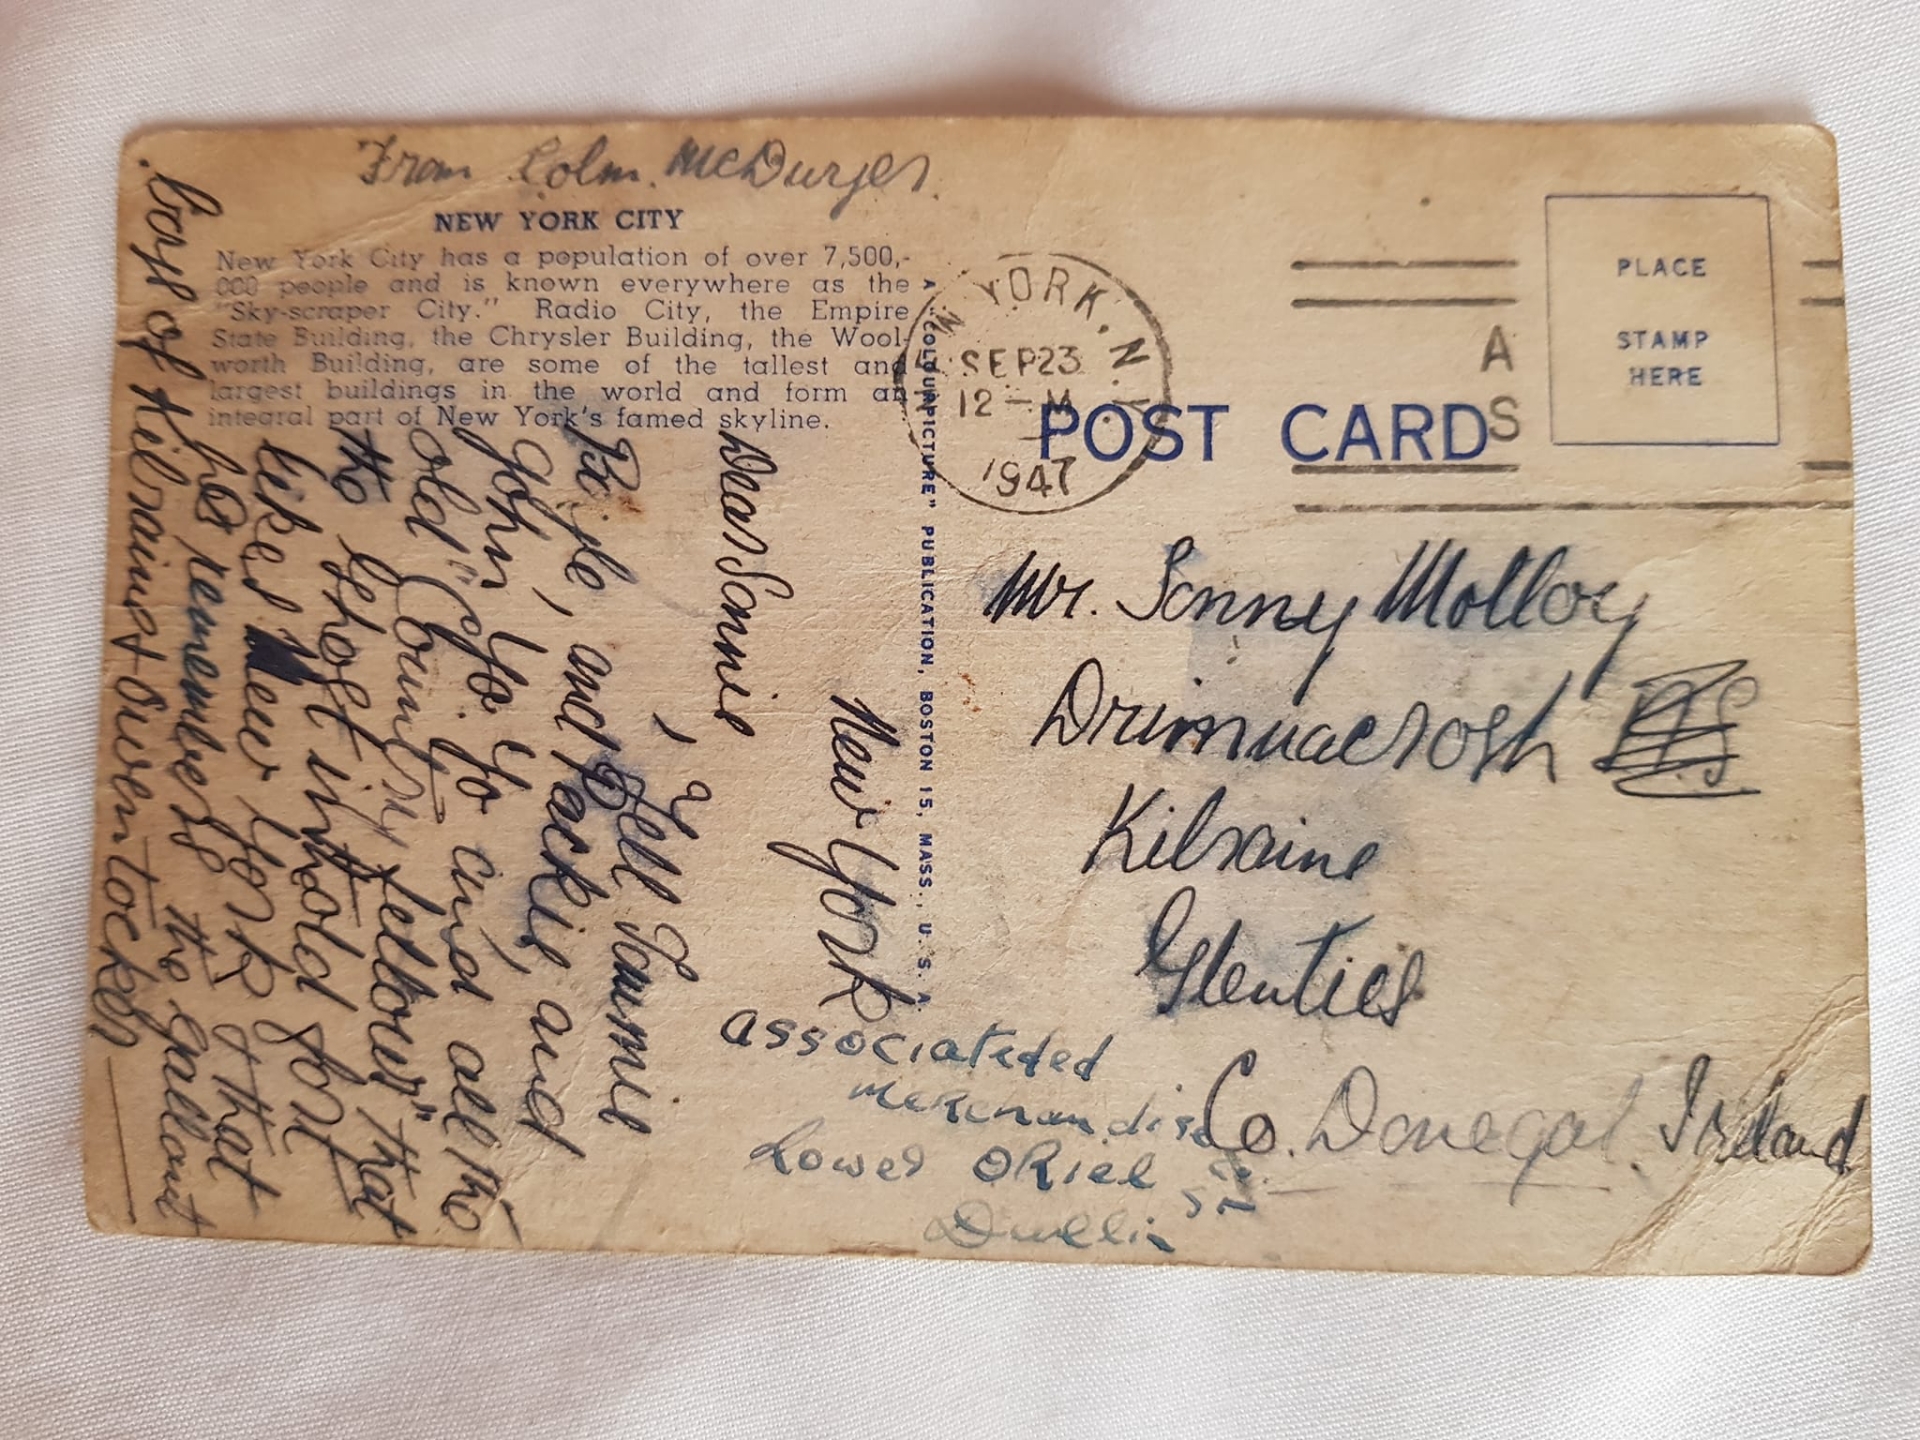 From Colm. McDurges.
NEW YORK CITY
New York City has a population of over 7,500,-
000 people and is known everywhere as the
"Sky-scraper City." Radio City, the Empire
State Building, the Chrysler Building, the Wool-
worth Building, are some of the tallest and
largest buildings in the world and form an
integral part of New York's famed skyline.
New York
Dear Sonnie
, & Tell Jammie
Boyle, and Packie and
John Yo. Yo and all the
old "Country fellows" that
the ghost in told for
likes New York & that
he remembers the gallant
boys of Kilraine & Owentocker
A "COLOURPICTURE" PUBLICATION, BOSTON 15, MASS., U. S. A.
N. YORK, N.Y.
SEP 23
12 - M
1947
A
S
PLACE
STAMP
HERE
POST CARD
Mr. Sonny Molloy
Drimnacrosh
Kilraine
Glenties
Co. Donegal. Ireland
Associateded
Merchandise
Lower ORiel St
Dublin